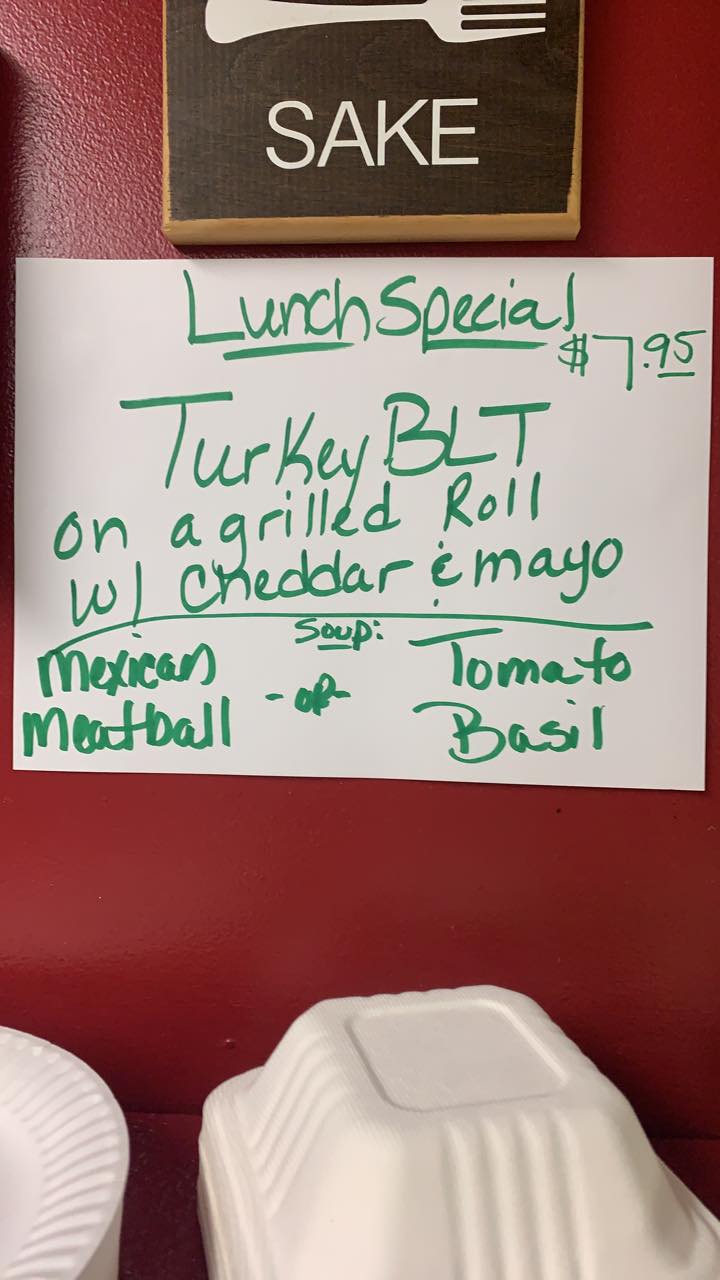 SAKE
Lunch Special
$7.95
Turkey BLT
on a grilled Roll
w/ Cheddar & mayo
Soup:
Mexican -or- Tomato
Meatball Basil